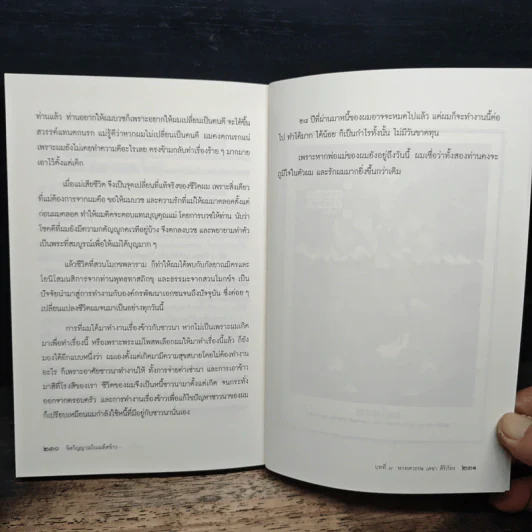 ท่านแล้ว ท่านอยากให้ผมบวชก็เพราะอยากให้ผมเปลี่ยนเป็นคนดี จะได้ขึ้น
สวรรค์แทนตกนรก แม่รู้ดีว่าหากผมไม่เปลี่ยนเป็นคนดี ผมคงตกนรกแน่
เพราะผมยังไม่เคยทำความดีอะไรเลย ตรงข้ามกลับทำเรื่องร้าย ๆ มากมาย
เอาไว้ตั้งแต่เด็ก
เมื่อแม่เสียชีวิต จึงเป็นจุดเปลี่ยนที่แท้จริงของชีวิตผม เพราะสิ่งเดียว
ที่แม่ต้องการจากผมคือ ขอให้ผมบวช และความรักที่แม่ให้ผมมาตลอดตั้งแต่
ก่อนผมคลอด ทำให้ผมคิดจะตอบแทนบุญคุณแม่ โดยการบวชให้ท่าน นับว่า
โชคดีที่ผมยังมีความกตัญญูกตเวทีอยู่บ้าง จึงตกลงบวช และพยายามทำตัว
เป็นพระที่สมบูรณ์เพื่อให้แม่ได้บุญมาก ๆ
แล้วชีวิตที่สวนโมกขพลาราม ก็ทำให้ผมได้พบกับกัลยาณมิตรและ
โยนิโสมนสิการจากท่านพุทธทาสภิกขุ และธรรมะจากสวนโมกข์ฯ เป็น
ปัจจัยนำมาสู่การทำงานกับองค์กรพัฒนาเอกชนจนถึงปัจจุบัน ซึ่งค่อย ๆ
เปลี่ยนแปลงชีวิตผมจนมาเป็นอย่างทุกวันนี้
การที่ผมได้มาทำงานเรื่องข้าวกับชาวนา หากไม่เป็นเพราะผมเกิด
มาเพื่อทำเรื่องนี้ หรือเพราะพระแม่โพสพเลือกผมให้มาทำเรื่องนี้แล้ว ก็ยัง
มองได้อีกแบบหนึ่งว่า ผมเองตั้งแต่เกิดมามีความสุขสบายโดยไม่ต้องทำงาน
อะไร ก็เพราะอาศัยชาวนาทำงานให้ ทั้งการจ่ายค่าเช่านา และการเอาข้าว
มาสีที่โรงสีของเรา ชีวิตของผมจึงเป็นหนี้ชาวนามาตั้งแต่เกิด จนกระทั่ง
ออกจากครอบครัว และการทำงานเรื่องข้าวเพื่อแก้ไขปัญหาชาวนาของผม
ก็เปรียบเหมือนผมกำลังใช้หนี้ที่มีอยู่กับชาวนานั่นเอง
๒๓๐ จิตวิญญาณในเมล็ดข้าว
๒๘ ปีที่ผ่านมาหนี้ของผมอาจจะหมดไปแล้ว แต่ผมก็จะทำงานนี้ต่อ
ไป ทำได้มาก ได้น้อย ก็เป็นกำไรทั้งนั้น ไม่มีวันขาดทุน
เพราะหากพ่อแม่ของผมยังอยู่ถึงวันนี้ ผมเชื่อว่าทั้งสองท่านคงจะ
ภูมิใจในตัวผม และรักผมมากยิ่งขึ้นกว่าเดิม
เดชา ศิริภัทร ๒๓๑